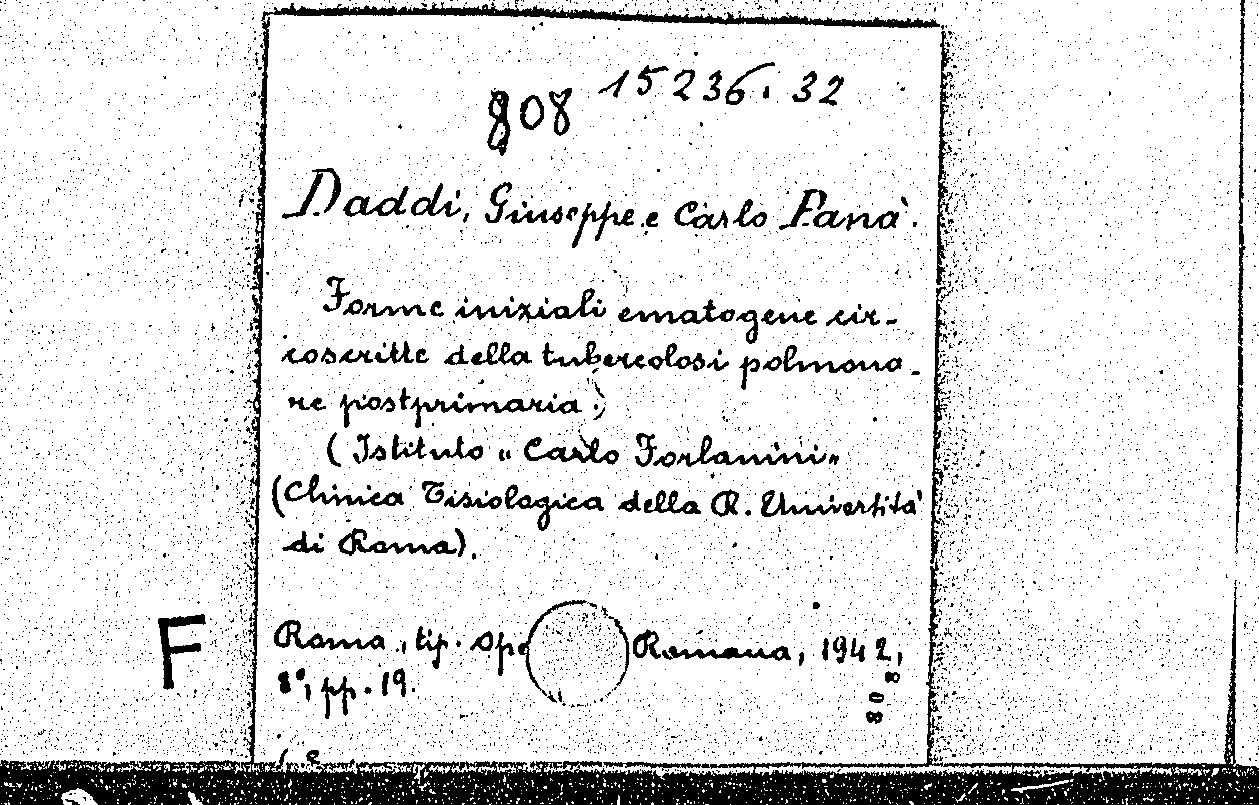 15236.32
808
Daddi, Giuseppe e Carlo Panà.
Forme iniziali ematogene cir-
coscritte della tubercolosi polmona-
re postprimaria.)
(Istituto "Carlo Forlanini"
(Clinica Tisiologica della R. Università
di Roma).
F
Roma, tip. Ope Romana, 1942,
8°, pp. 19.
808